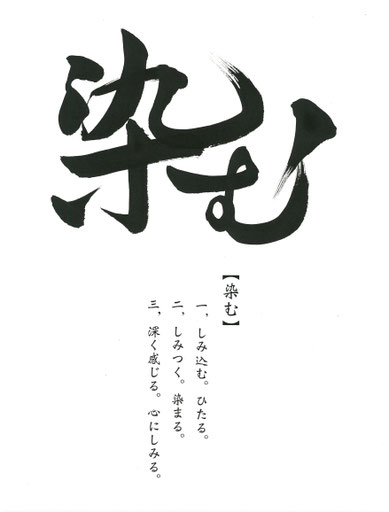 染む
【染む】
一，しみ込む。ひたる。
二，しみつく。染まる。
三，深く感じる。心にしみる。